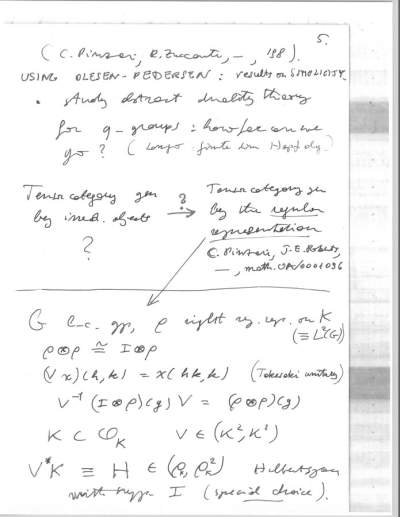 5.
( C. Pinzari, R. Zuccante, –, '98 ).
USING OLESEN-PEDERSEN : results on SIMPLICITY.
• Study abstract duality theory
for q-groups : how far can we
go ? ( Longo finite dim Hopf alg. )
Tensor category gen
by irred. objects
?
? →
Tensor category gen
by the regular
representation
C. Pinzari, J.E. Roberts,
–, math.OA/0001096
G l.c. gp, ρ right reg. rep. on K
(≡ L²(G))
ρ⊗ρ ≅ I⊗ρ
(V x)(h,k) = x(hk,k) (Takesaki unitary)
V⁻¹ (I⊗ρ)(g) V = (ρ⊗ρ)(g)
K ⊂ O_K V ∈ (K², K²)
V*K ≡ H ∈ (ρ_K, ρ_K²) Hilbert space
with supp. I (special choice).